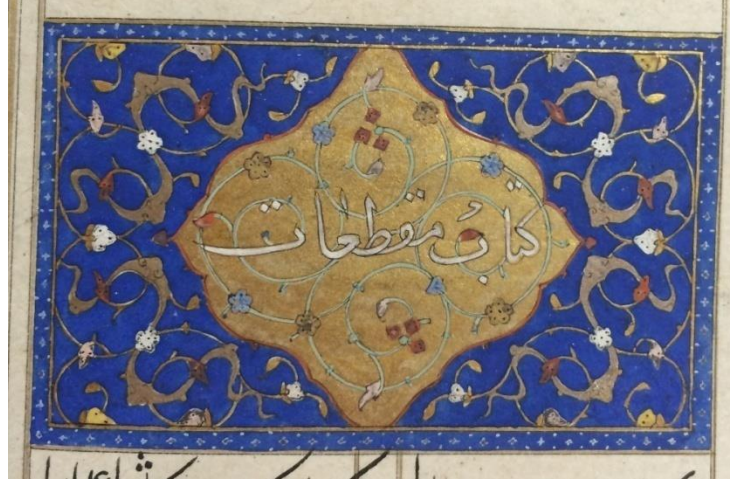 کتابُ مقطعات